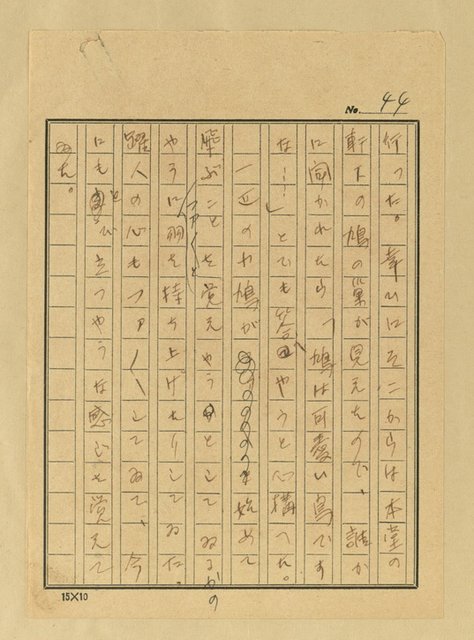 No. 44
行つた。幸ひにそこからは本堂の
軒下の鳩の巣が見えたので、誰か
に聞かれたら「鳩は可愛い鳥です
な……」とでも答へやうと心構へた。
一匹の鳩が始めて
飛ぶことを覚えやうとしてゐるかの
やうに羽を持ち上げたりしてゐた。
人の心もファ〳〵してゐて、今
にもとび立つやうな感じを覚えて
ゐた。
15×10